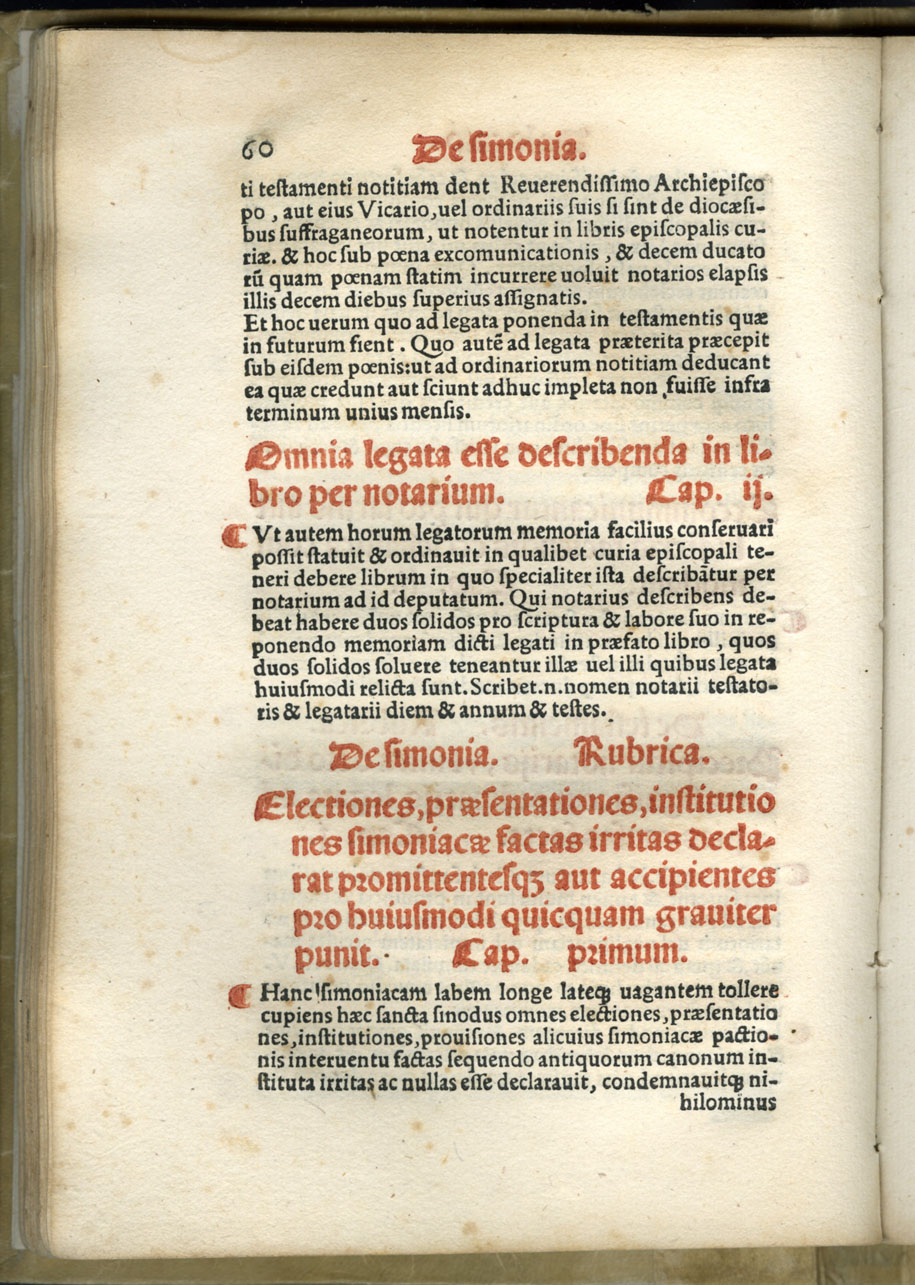 60 De simonia.
ti testamenti notitiam dent Reuerendissimo Archiepisco
po, aut eius Vicario, uel ordinariis suis si sint de diocæsi-
bus suffraganeorum, ut notentur in libris episcopalis cu-
riæ. & hoc sub pœna excomunicationis, & decem ducato
rũ quam pœnam statim incurrere uoluit notarios elapsis
illis decem diebus superius assignatis.
Et hoc uerum quo ad legata ponenda in testamentis quæ
in futurum fient. Quo autẽ ad legata præterita præcepit
sub eisdem pœnis: ut ad ordinariorum notitiam deducant
ea quæ credunt aut sciunt adhuc impleta non fuisse infra
terminum unius mensis.
Omnia legata esse describenda in li-
bro per notarium. Cap. ij.
¶ Vt autem horum legatorum memoria facilius conseruari
possit statuit & ordinauit in qualibet curia episcopali te-
neri debere librum in quo specialiter ista describãtur per
notarium ad id deputatum. Qui notarius describens de-
beat habere duos solidos pro scriptura & labore suo in re-
ponendo memoriam dicti legati in præfato libro, quos
duos solidos soluere teneantur illæ uel illi quibus legata
huiusmodi relicta sunt. Scribet.n.nomen notarii testato-
ris & legatarii diem & annum & testes.
De simonia. Rubrica.
Electiones, præsentationes, institutio
nes simoniacæ factas irritas decla-
rat promittentesqꝫ aut accipientes
pro huiusmodi quicquam grauiter
punit. Cap. primum.
¶ Hanc simoniacam labem longe lateqꝫ uagantem tollere
cupiens hæc sancta sinodus omnes electiones, præsentatio
nes, institutiones, prouisiones alicuius simoniacæ pactio-
nis interuentu factas sequendo antiquorum canonum in-
stituta irritas ac nullas esse declarauit, condemnauitqꝫ ni-
hilominus